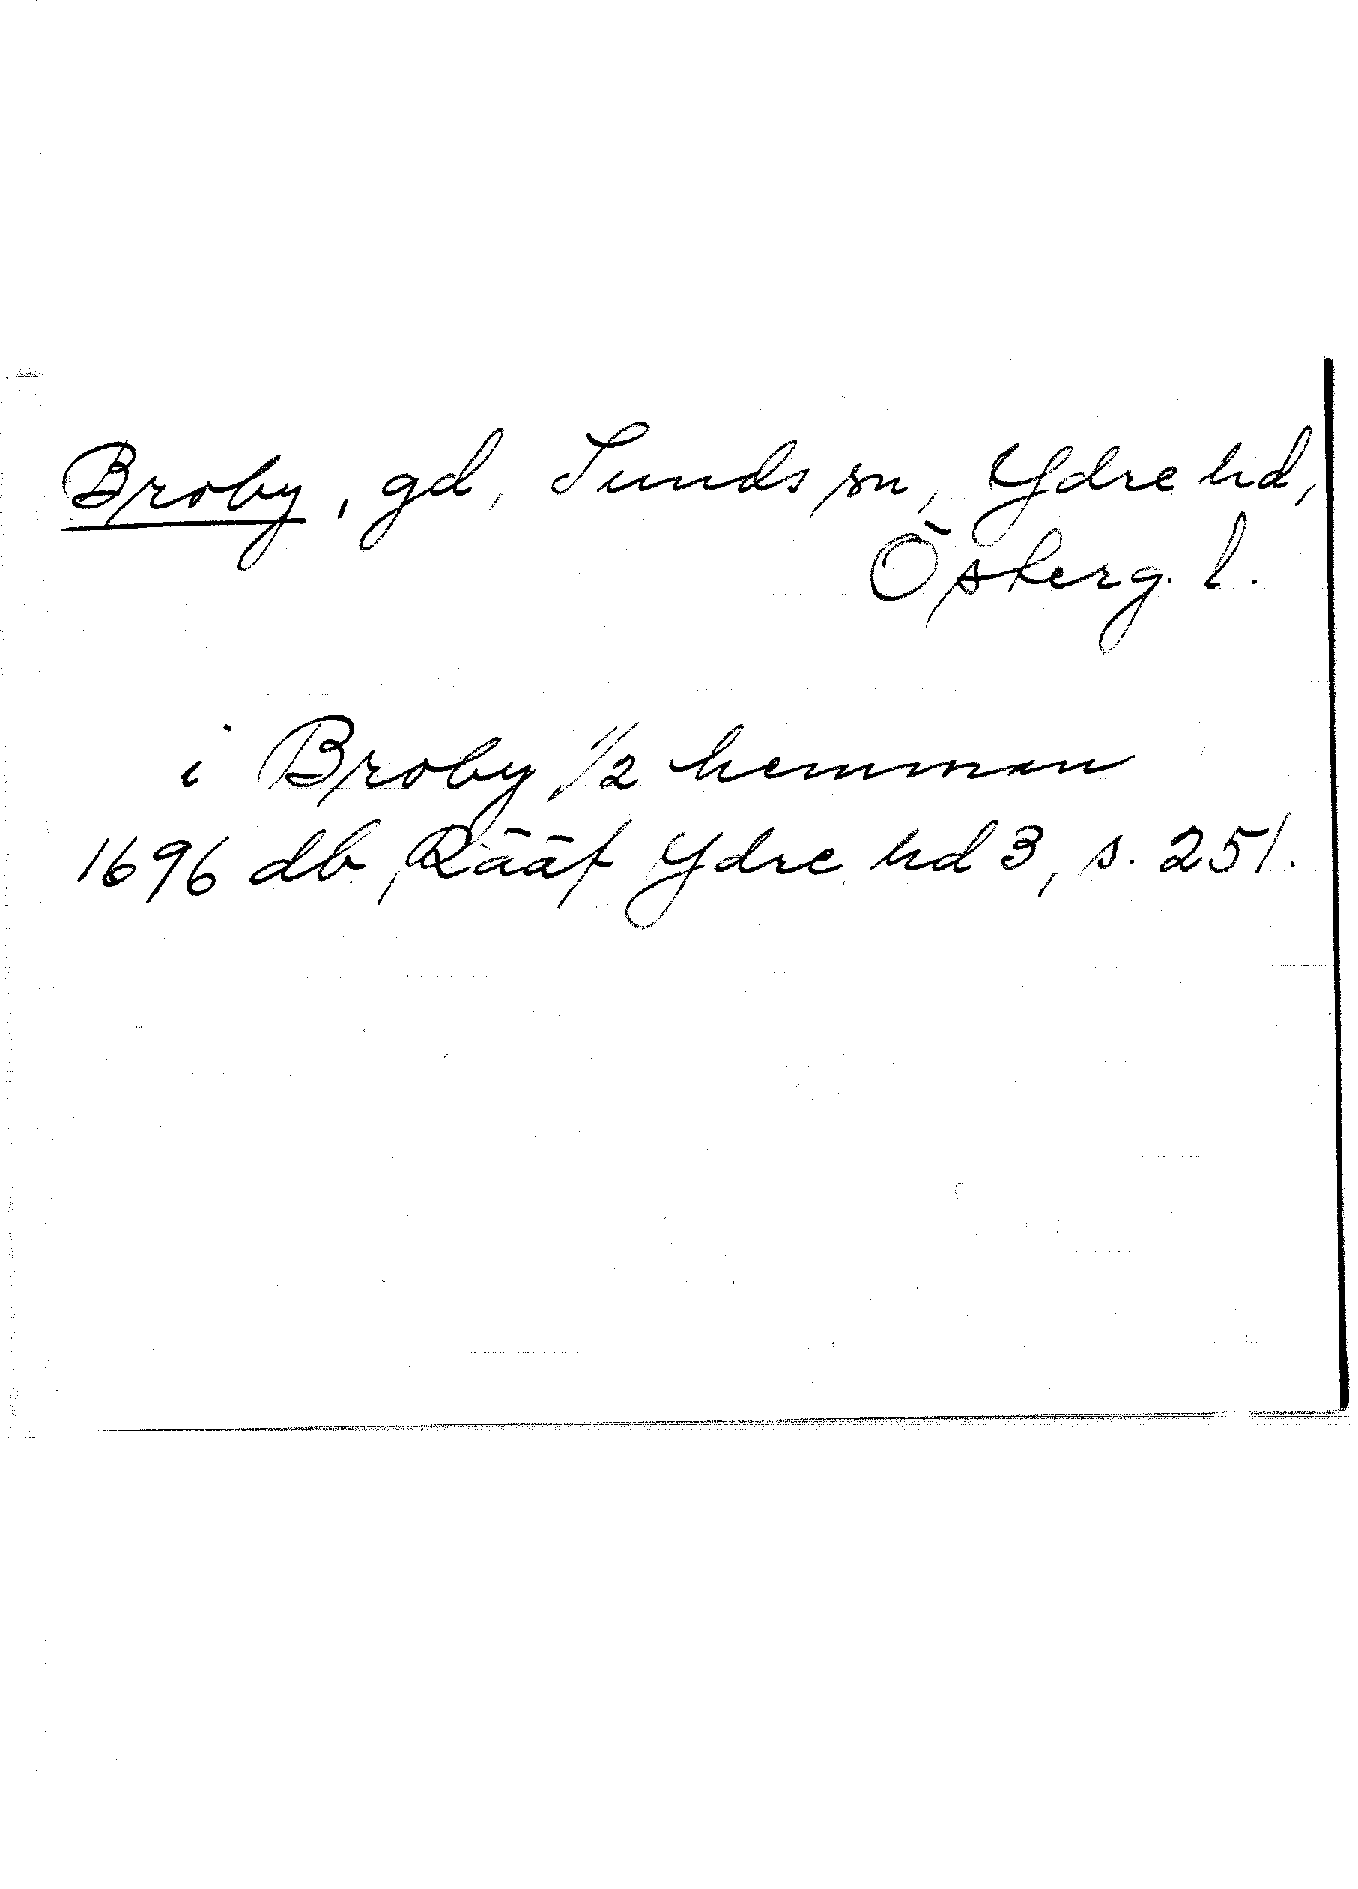 Broby, gd, Sunds sn, Ydre hd,
Österg. l.
i Broby 1/2 hemman
1696 db, Rääf Ydre hd 3, s. 251.